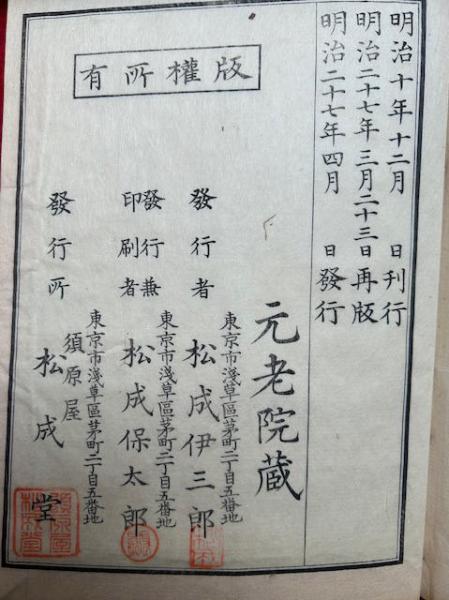 明治十年十二月 日刊行
明治二十七年三月二十三日再版
明治二十七年四月 日發行
元老院蔵
版權所有
東京市淺草區茅町二丁目五番地
發行者 松成伊三郎
東京市淺草區茅町二丁目五番地
發行兼印刷者 松成保太郎
東京市淺草區茅町二丁目五番地
發行所 須原屋 松成堂